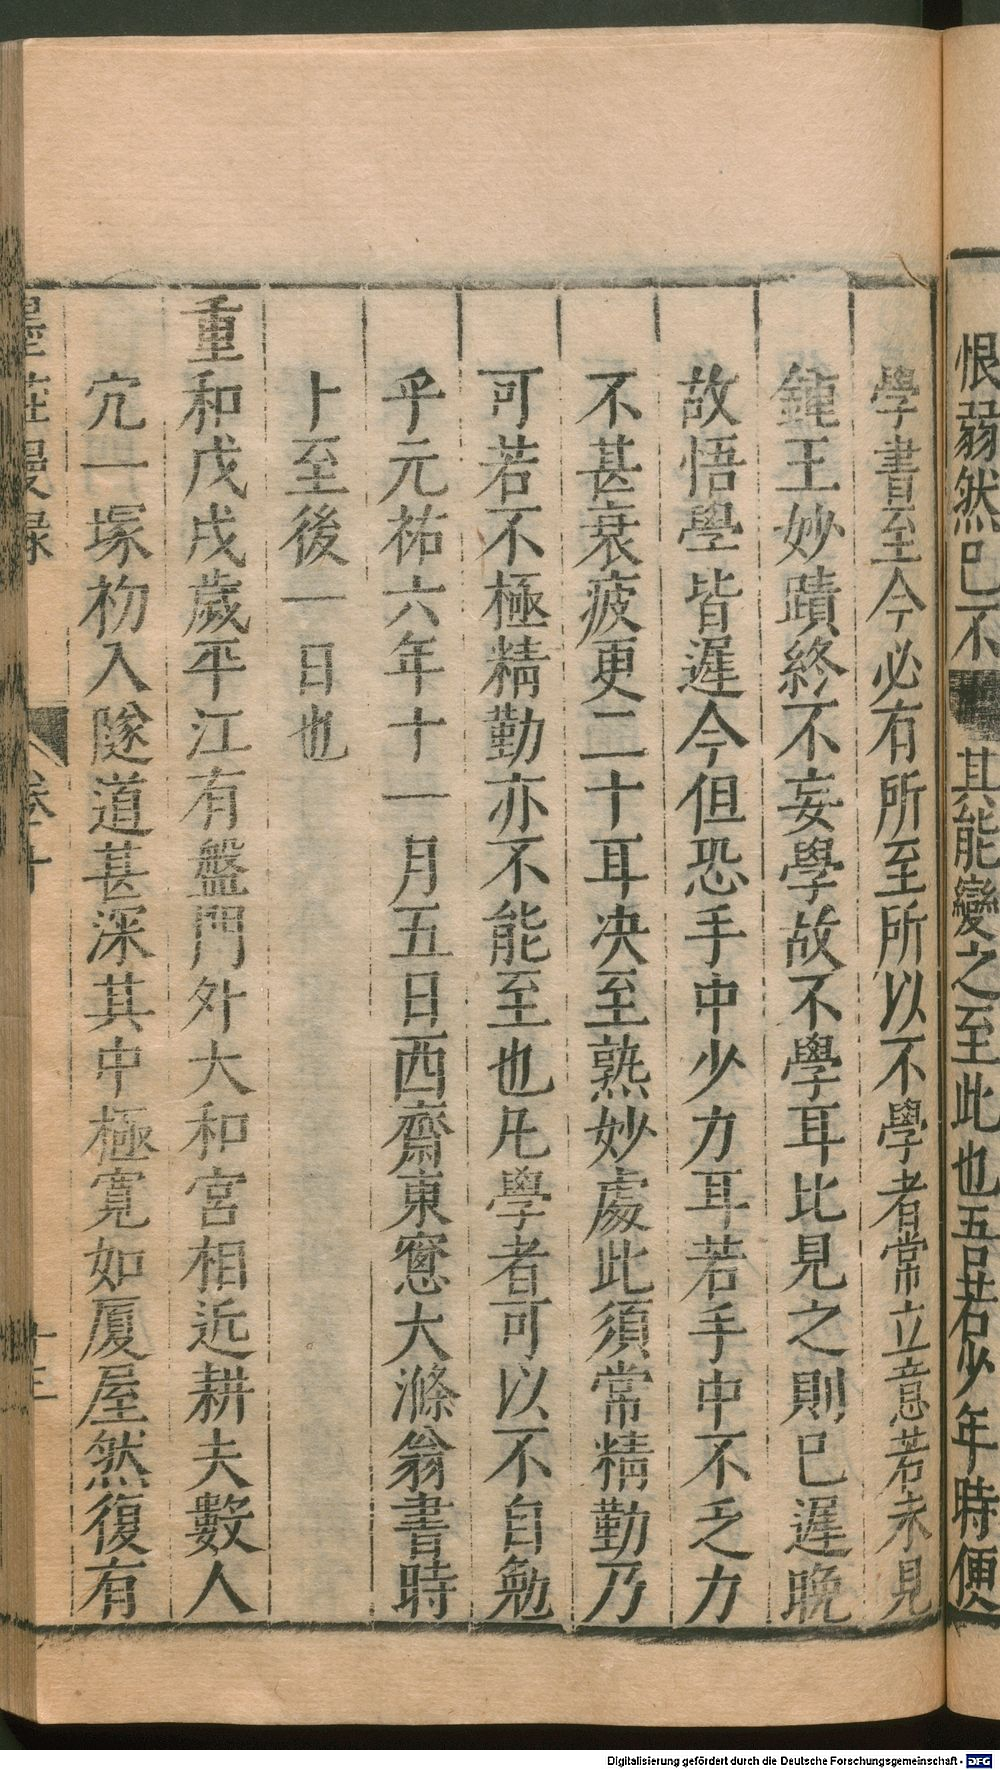 恨弱然已不 其能變之至此也吾若少年時便
學書至今必有所至所以不學者常立意若未見
鍾王妙蹟終不妄學故不學耳比見之則已遲晚
故悟學皆遲今但恐手中少力耳若手中不乏力
不甚衰疲更二十耳决至熟妙處此須常精勤乃
可若不極精勤亦不能至也凡學者可以不自勉
乎元祐六年十一月五日西齋東窻大滌翁書時
卜至後一日也
重和戊戌歲平江有盤門外大和宮相近耕夫數人
宂一塚初入隧道甚深其中極寬如厦屋然復有
墨莊漫録 卷十 十三
Digitalisierung gefördert durch die Deutsche Forschungsgemeinschaft - DFG